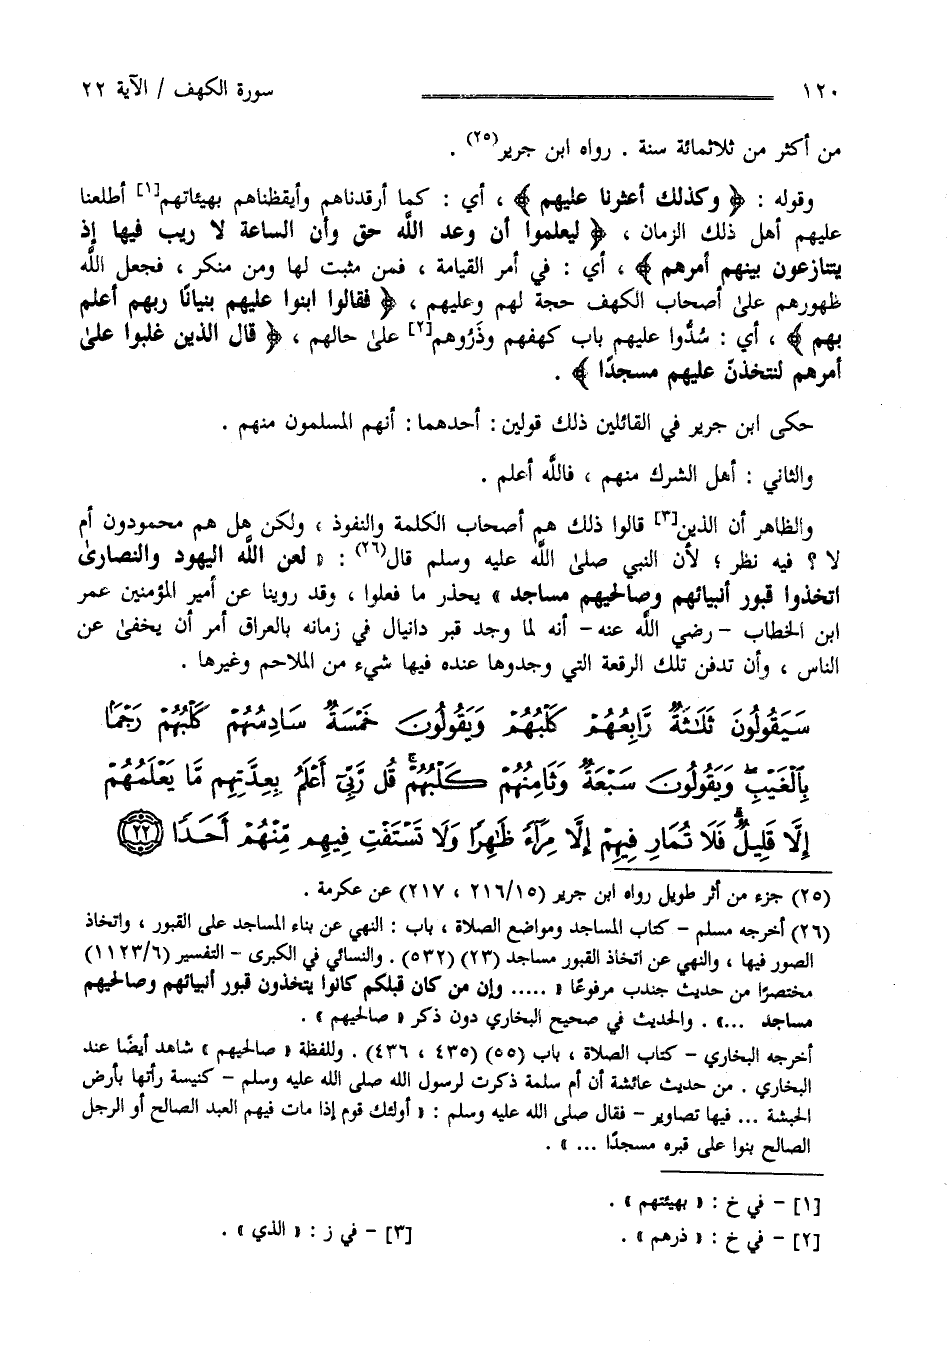 ١٢٠ سورة الكهف / الآية ٢٢
من أكثر من ثلاثمائة سنة . رواه ابن جرير(٢٥) .
وقوله : ﴿ وكذلك أعثرنا عليهم ﴾ ، أي : كما أرقدناهم وأيقظناهم بهيئاتهم[١] أطلعنا
عليهم أهل ذلك الزمان ، ﴿ ليعلموا أن وعد اللَّه حق وأن الساعة لا ريب فيها إذ
يتنازعون بينهم أمرهم ﴾ ، أي : في أمر القيامة ، فمن مثبت لها ومن منكر ، فجعل اللَّه
ظهورهم علىٰ أصحاب الكهف حجة لهم وعليهم ، ﴿ فقالوا ابنوا عليهم بنيانًا ربهم أعلم
بهم ﴾ ، أي : سُدُّوا عليهم باب كهفهم وذَرُوهم[٢] علىٰ حالهم ، ﴿ قال الذين غلبوا علىٰ
أمرهم لنتخذنّ عليهم مسجدًا ﴾ .
حكى ابن جرير في القائلين ذلك قولين : أحدهما : أنهم المسلمون منهم .
والثاني : أهل الشرك منهم ، فاللَّه أعلم .
والظاهر أن الذين[٣] قالوا ذلك هم أصحاب الكلمة والنفوذ ، ولكن هل هم محمودون أم
لا ؟ فيه نظر ؛ لأن النبي صلىٰ اللَّه عليه وسلم قال(٢٦) : « لعن اللَّه اليهود والنصارىٰ
اتخذوا قبور أنبيائهم وصالحيهم مساجد » يحذر ما فعلوا ، وقد روينا عن أمير المؤمنين عمر
ابن الخطاب - رضي اللَّه عنه - أنه لما وجد قبر دانيال في زمانه بالعراق أمر أن يخفىٰ عن
الناس ، وأن تدفن تلك الرقعة التي وجدوها عنده فيها شيء من الملاحم وغيرها .
سَيَقُولُونَ ثَلَٰثَةٌ رَّابِعُهُمْ كَلْبُهُمْ وَيَقُولُونَ خَمْسَةٌ سَادِسُهُمْ كَلْبُهُمْ رَجْمًۢا
بِٱلْغَيْبِۖ وَيَقُولُونَ سَبْعَةٌ وَثَامِنُهُمْ كَلْبُهُمْۚ قُل رَّبِّىٓ أَعْلَمُ بِعِدَّتِهِم مَّا يَعْلَمُهُمْ
إِلَّا قَلِيلٌۗ فَلَا تُمَارِ فِيهِمْ إِلَّا مِرَآءً ظَٰهِرًا وَلَا تَسْتَفْتِ فِيهِم مِّنْهُمْ أَحَدًا ٢٢
(٢٥) جزء من أثر طويل رواه ابن جرير (٢١٦/١٥ ، ٢١٧) عن عكرمة .
(٢٦) أخرجه مسلم - كتاب المساجد ومواضع الصلاة ، باب : النهي عن بناء المساجد على القبور ، واتخاذ
الصور فيها ، والنهي عن اتخاذ القبور مساجد (٢٣) (٥٣٢) . والنسائي في الكبرى - التفسير (١١٢٣/٦)
مختصرًا من حديث جندب مرفوعًا « ..... وإن من كان قبلكم كانوا يتخذون قبور أنبيائهم وصالحيهم
مساجد ...» . والحديث في صحيح البخاري دون ذكر « صالحيهم » .
أخرجه البخاري - كتاب الصلاة ، باب (٥٥) (٤٣٥ ، ٤٣٦) . وللفظة « صالحيهم » شاهد أيضًا عند
البخاري . من حديث عائشة أن أم سلمة ذكرت لرسول الله صلى الله عليه وسلم - كنيسة رأتها بأرض
الحبشة ... فيها تصاوير - فقال صلى الله عليه وسلم : « أولئك قوم إذا مات فيهم العبد الصالح أو الرجل
الصالح بنوا على قبره مسجدًا ... » .
[١] - في خ : « بهيئتهم » .
[٢] - في خ : « ذرهم » . [٣] - في ز : « الذي » .